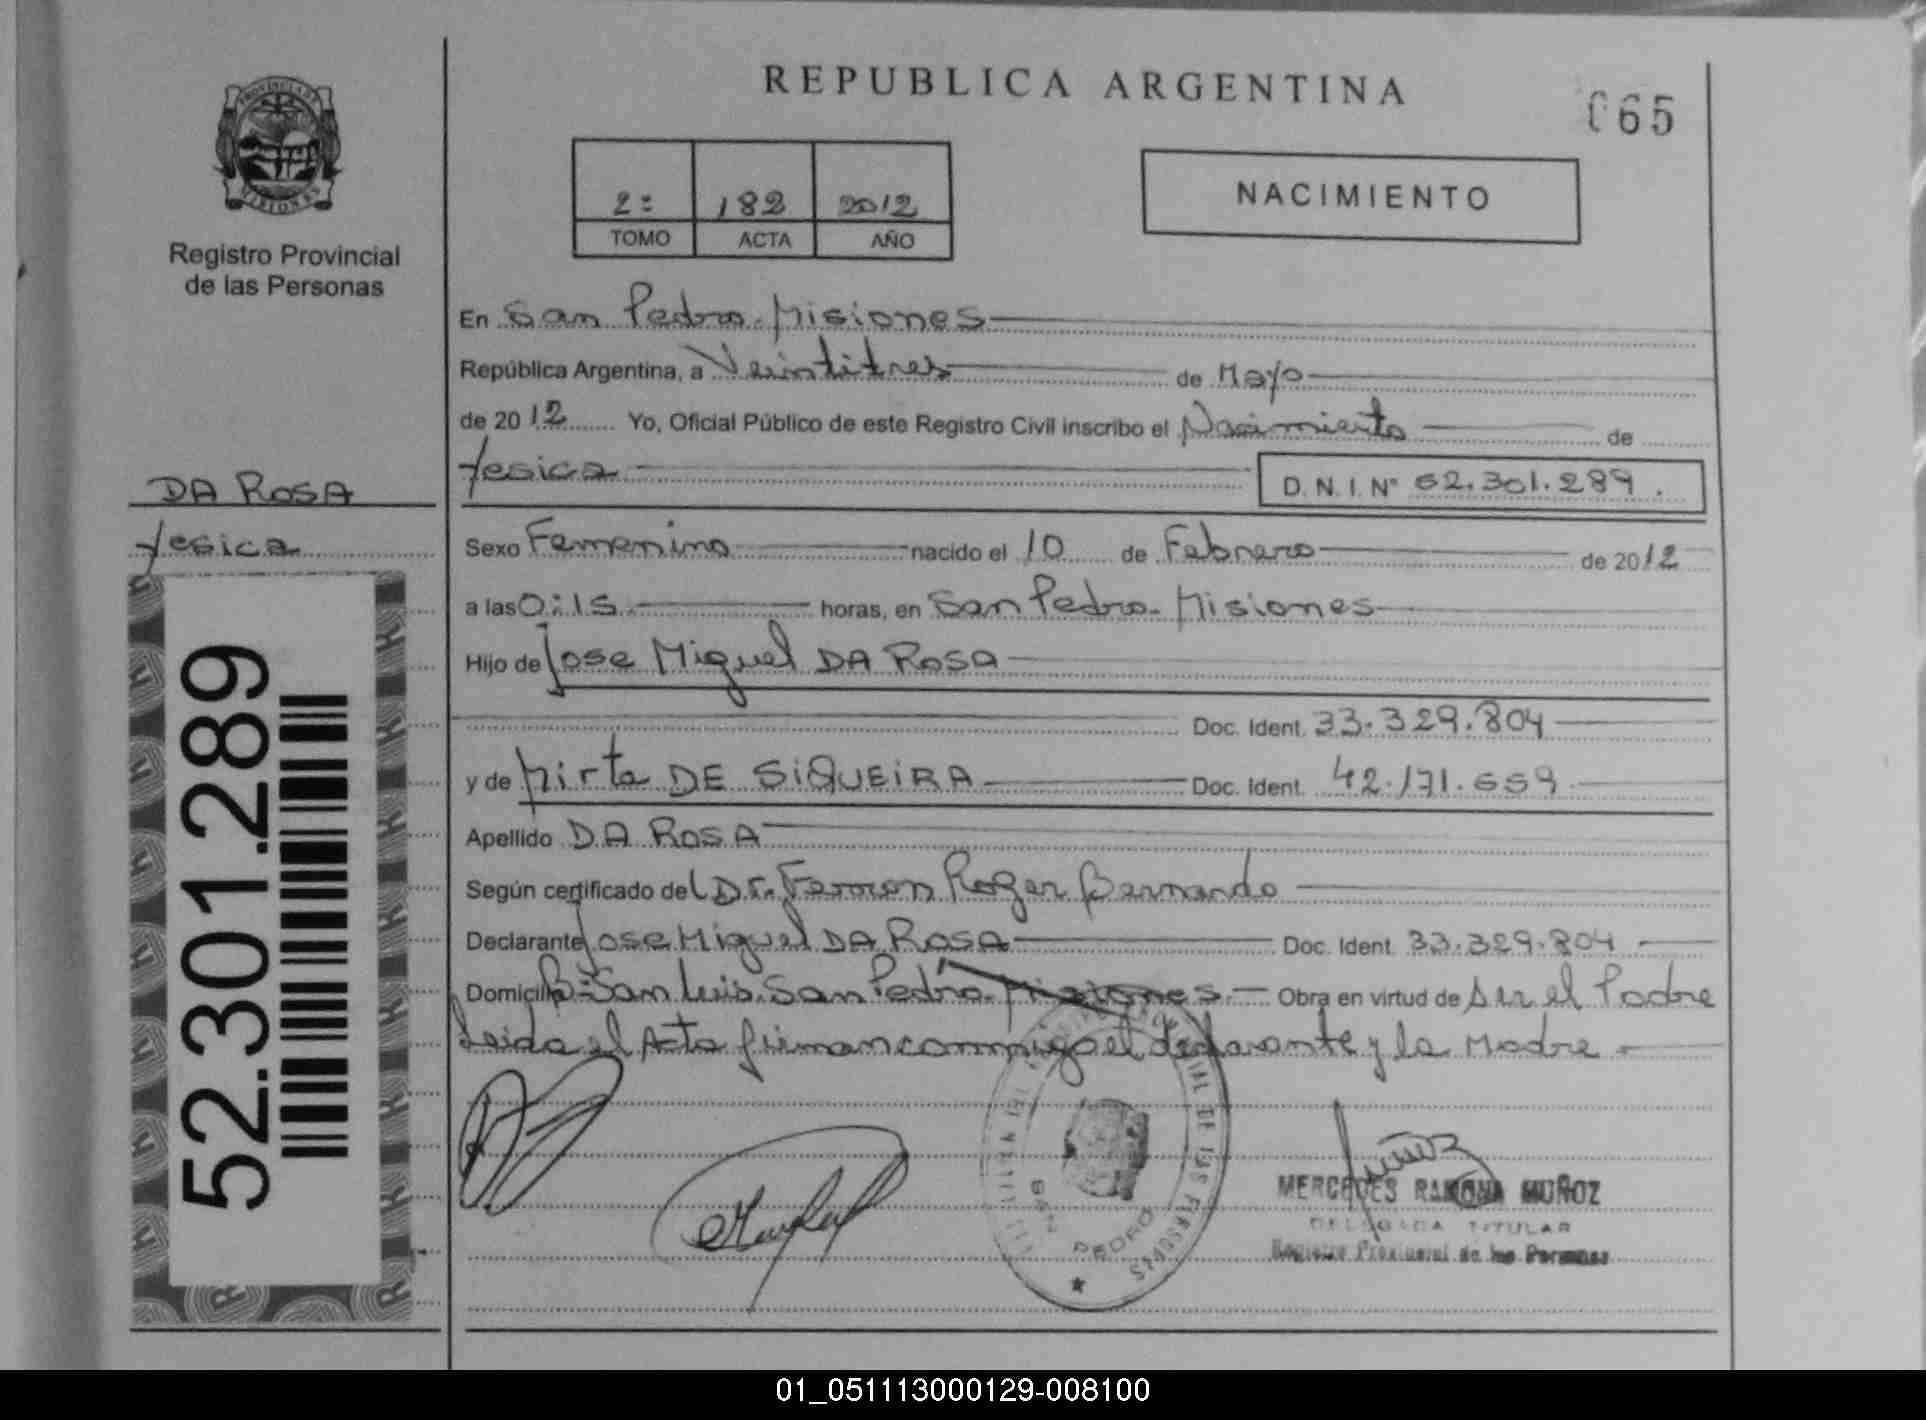 REPUBLICA ARGENTINA
065
PROVINCIA DE
MISIONES
Registro Provincial
de las Personas
2º 182 2012
TOMO ACTA AÑO
NACIMIENTO
En San Pedro - Misiones
República Argentina, a Veintitres de Mayo
de 2012 Yo, Oficial Público de este Registro Civil inscribo el Nacimiento de
Yesica D.N.I. Nº 52.301.289.
DA ROSA
Yesica
52.301.289
Sexo Femenino nacido el 10 de Febrero de 2012
a las 0:15 horas, en San Pedro - Misiones
Hijo de Jose Miguel DA ROSA
Doc. Ident. 33.329.804
y de Mirta DE SIQUEIRA Doc. Ident. 42.171.659
Apellido DA ROSA
Según certificado del Dr. Roger Bernardo
Declarante Jose Miguel DA ROSA Doc. Ident. 33.329.804
Domicilio Bº San Luis. San Pedro. Misiones. Obra en virtud de ser el Padre
Leida el Acta firman conmigo el declarante y la Madre
SAN PEDRO
MERCEDES RAMONA MUÑOZ
DELEGADA TITULAR
Registro Provincial de las Personas
01_051113000129-008100